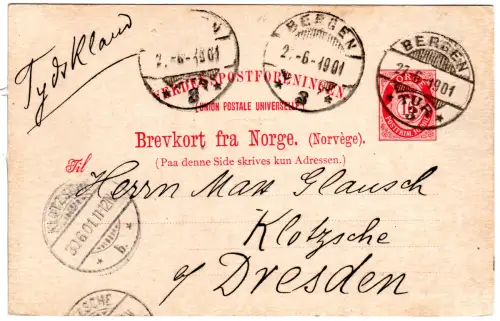 Tydskland
BERGEN
2.-6-1901
3
BERGEN
2.-6-1901
3
BERGEN
TUR
3
VERDENSPOSTFORENINGEN
(UNION POSTALE UNIVERSELLE)
Brevkort fra Norge. (Norvège).
(Paa denne Side skrives kun Adressen.)
Til
Herrn Max Glausch
Klotzsche
a/ Dresden
30.6.01.11-12
b.